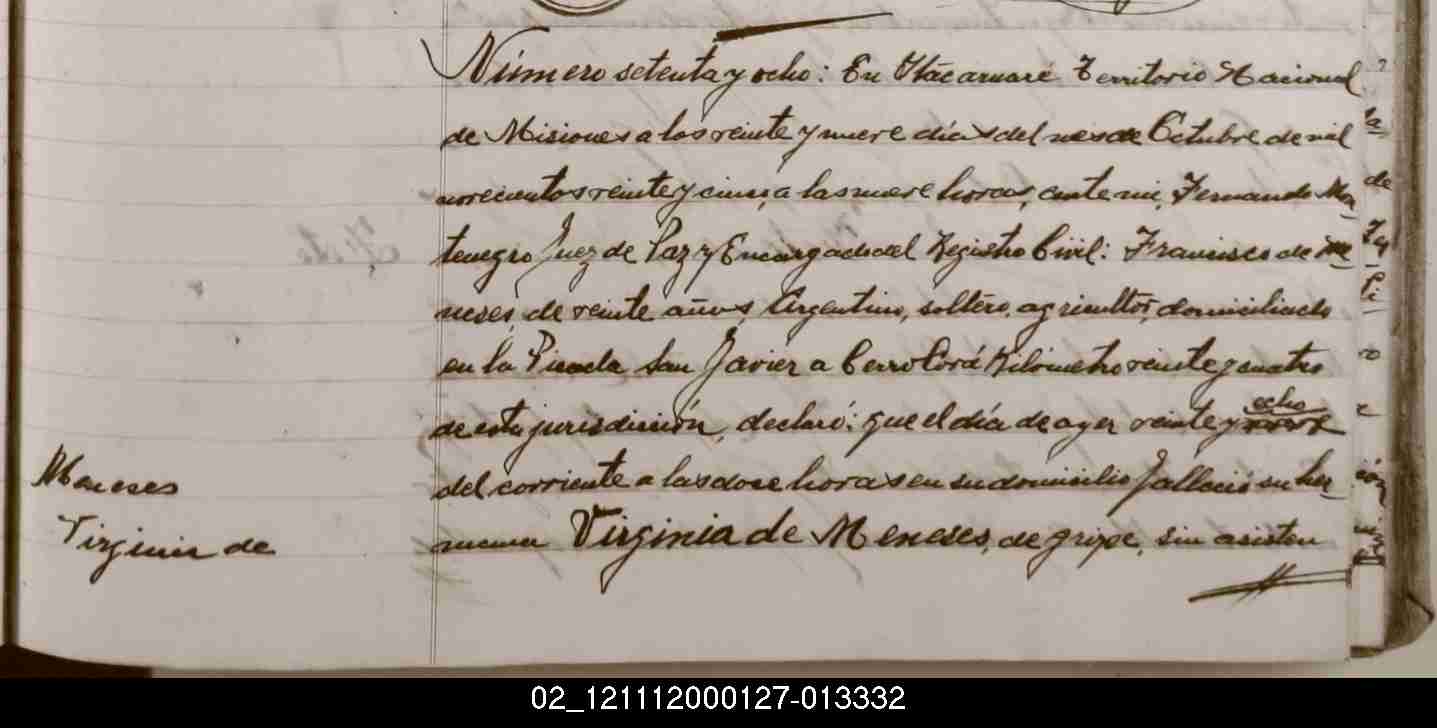 Número setenta y ocho: En Itácaruaré Territorio Nacional
de Misiones a los veinte y nueve días del mes de Octubre de mil
novecientos veinte y cinco, a las nueve horas, ante mi, Fernando Mon
tenegro Juez de Paz y Encargado del Registro Civil: Francisco de Me
neses, de veinte años, Argentino, soltero, agricultor, domiciliado
en la Picada San Javier a Cerro Corá Kilómetro veinte y cuatro
de esta jurisdicción, declaró: que el día de ayer veinte y ocho
del corriente a las doce horas en su domicilio falleció su her
Meneses
mana Virginia de Meneses, de gripe, sin asisten
Virginia de
02_121112000127-013332